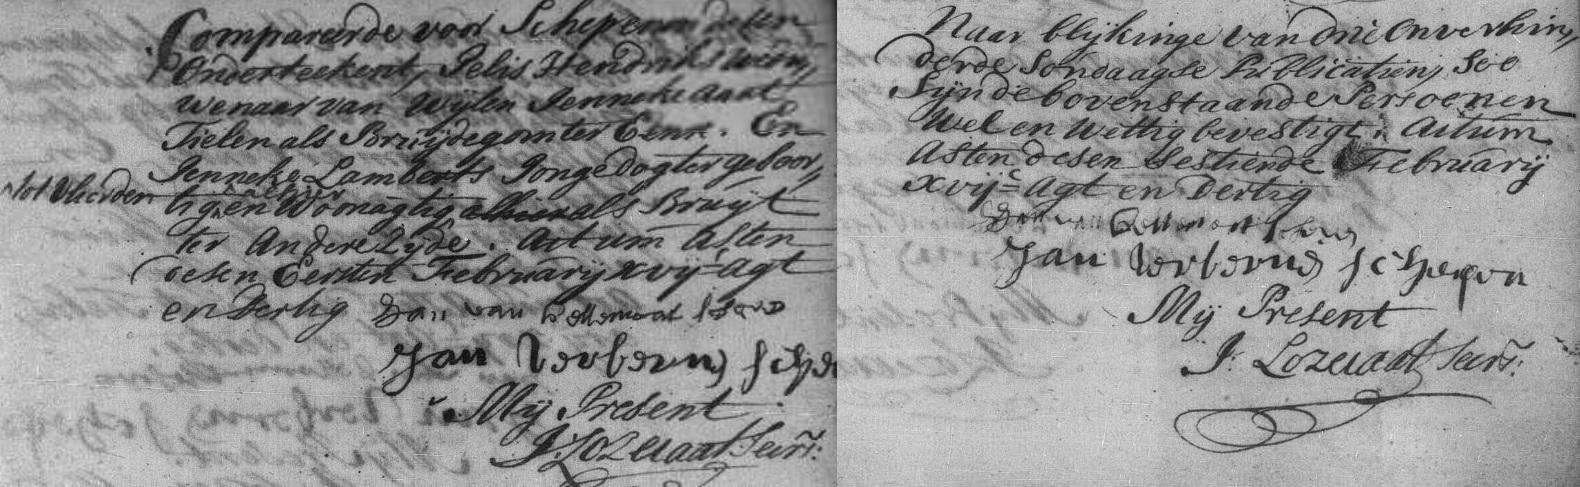 Compareerde voor Schepenen desen
Onderteekent, Jelis Hendriks weu,,
wenaar van Wijlen Jenneke aart
Tielen als Bruijdegom ter Eenr. En
Jenneke Lamberts Jonge dogter geboor,,
tot Vlierden
tig en Woonagtig alhier als Bruijt
ter Andere Zyde. Actum Asten
desen Eersten Februarij xvijc Agt
en Dertig Jan van
Jan Verberne schepen
Mij Present
J: Lozecaat Secrs:
Naar blijkinge van drie Onverhin,,
derde Sondaagse Publicatien, Soo
Sijn de bovenstaande Persoenen
Wel en Wettig bevestigt. Actum
Asten desen Sestiende Februarij
xvijc Agt en Dertig
Jan Verberne schepen
Mij Present
J: Lozecaat Secrs: